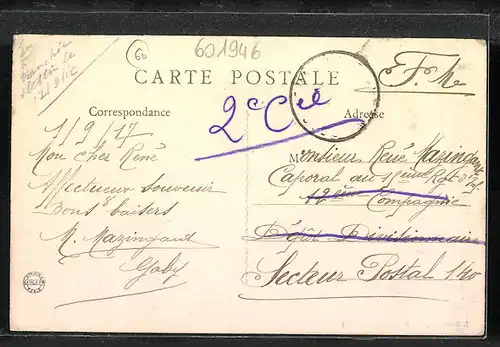 60
601946
CARTE POSTALE
F. M
2e Cie
Correspondance
Adresse
1/9/17
Mon cher René
Affectueux souvenir
Bons baisers
M. Mazingant
Gaby
Monsieur René Mazingant
Caporal au 11ème Rgt d'Inf.
12ème Compagnie
Dépôt Divisionnaire
Secteur Postal 140